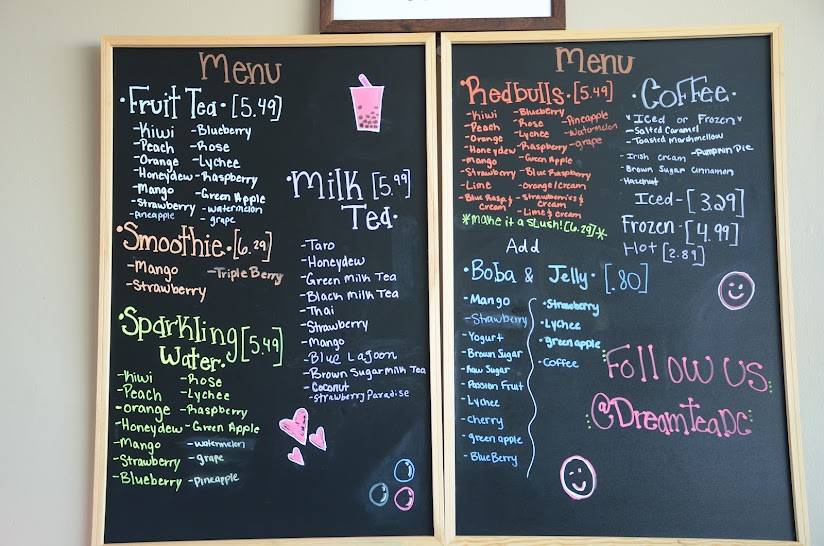 Menu
·Fruit Tea·[5.49]
-Kiwi -Blueberry
-Peach -Rose
-Orange -Lychee
-Honeydew -Raspberry
-Mango -Green Apple
-Strawberry -watermelon
-pineapple -grape
·Smoothie·[6.29]
-Mango -Triple Berry
-Strawberry
·Sparkling [5.49]
Water·
-Kiwi -Rose
-Peach -Lychee
-orange -Raspberry
-Honeydew -Green Apple
-Mango -watermelon
-Strawberry -grape
-Blueberry -pineapple
·Milk [5.99]
Tea·
-Taro
-Honeydew
-Green milk Tea
-Black milk Tea
-Thai
-Strawberry
-mango
-Blue Lagoon
-Brown Sugar milk Tea
-Coconut
-strawberry Paradise
Menu
·Redbulls·[5.49]
-Kiwi -Blueberry -Pineapple
-Peach -Rose -watermelon
-Orange -Lychee -grape
-Honeydew -Raspberry
-mango -Green Apple
-Strawberry -Blue Raspberry
-Lime -Orange/Cream
-Blue Rasp & Cream -Strawberries & Cream
-Lime & cream
*make it a slush! [6.29]*
·Coffee·
"Iced or Frozen"
-Salted Caramel
-Toasted Marshmellow
-Irish Cream -Pumpkin Pie
-Brown Sugar Cinnamon
-Hazelnut
Iced-[3.29]
Frozen-[4.99]
Hot [2.89]
Add
·Boba & Jelly·[.80]
-Mango ·Strawberry
-Strawberry ·Lychee
-Yogurt ·green apple
-Brown Sugar ·Coffee
-Raw Sugar
-Passion Fruit
-Lychee
-Cherry
-green apple
-BlueBerry
Follow us
@Dreamteadc